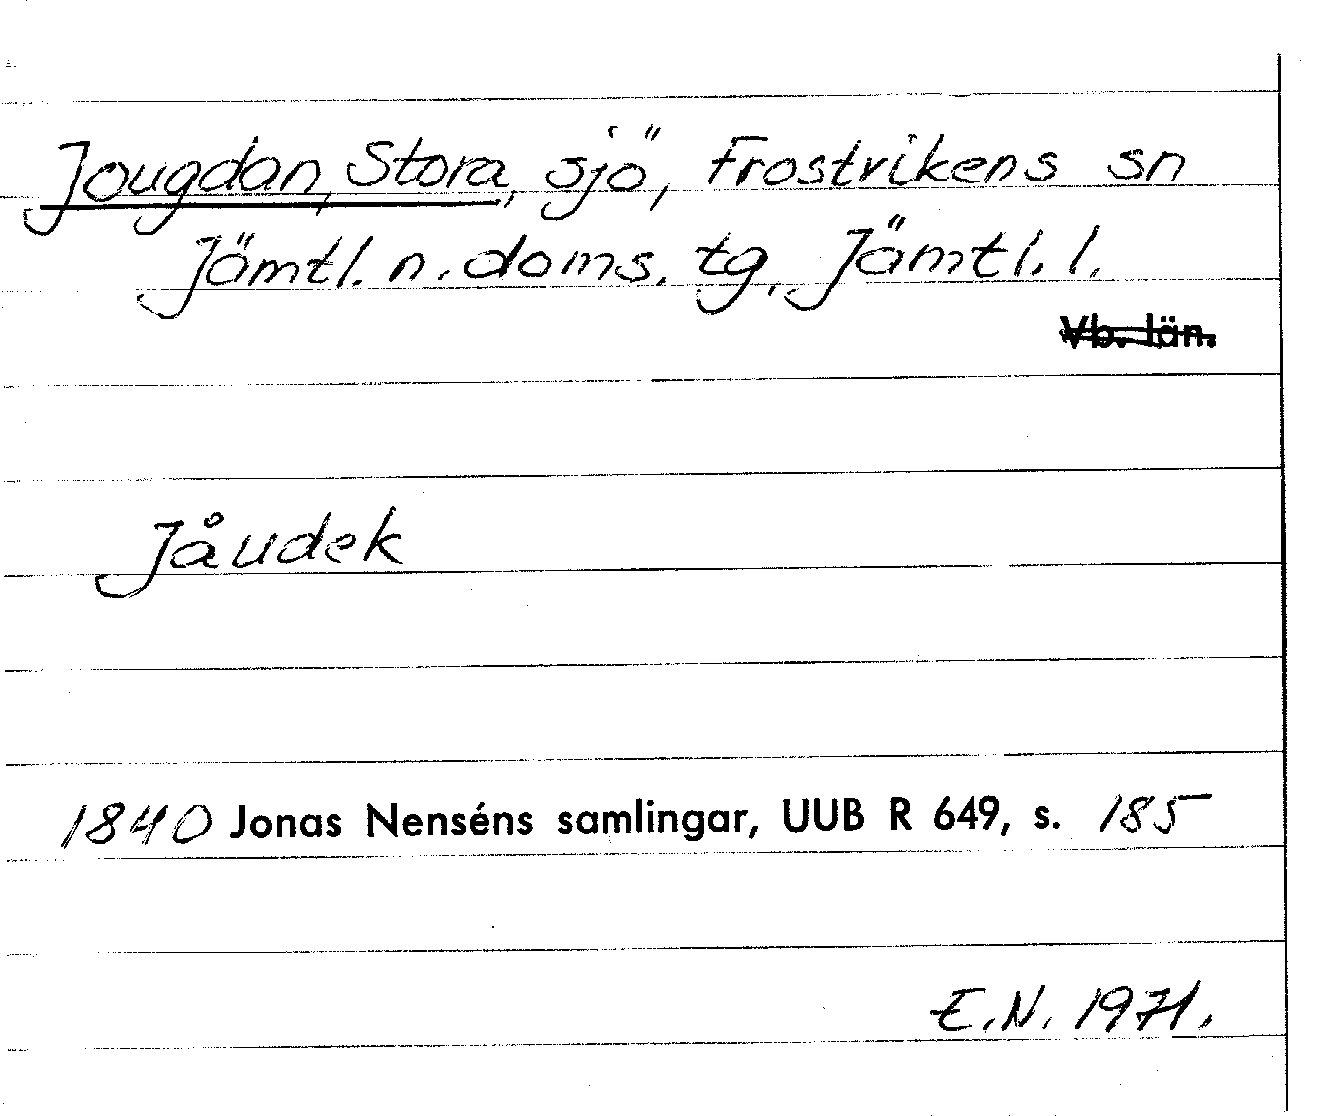 Jougdan, Stora, sjö, Frostvikens sn
Jämtl. n. doms. tg, Jämtl. l.
Vb. län.
Jåudek
1840 Jonas Nenséns samlingar, UUB R 649, s. 185
E.N. 1971.